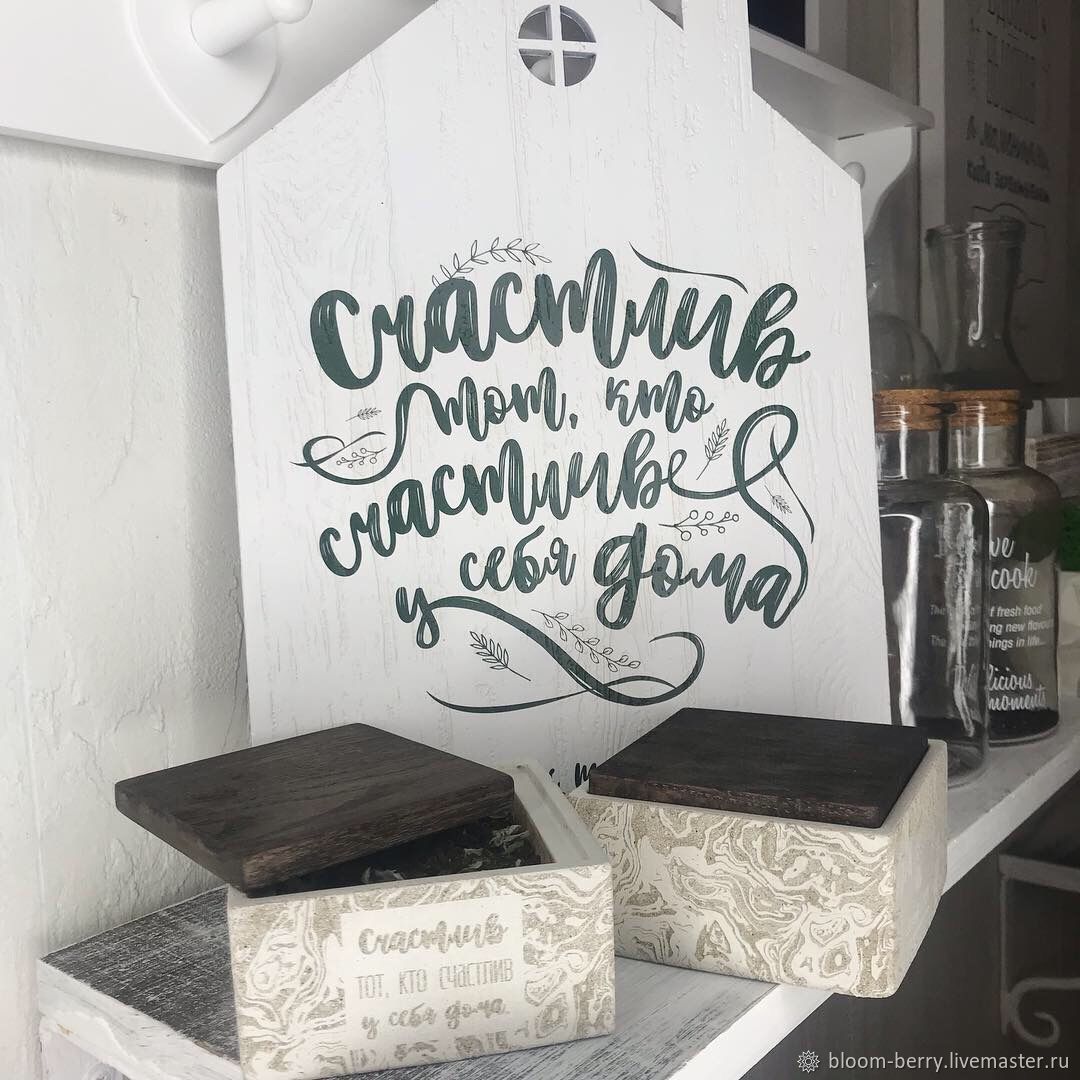 Счастлив
тот, кто
счастлив
у себя дома
Счастлив
тот, кто счастлив
у себя дома.
cook
f fresh food
ng new flavou
ings in life...
licious
moments
bloom-berry.livemaster.ru